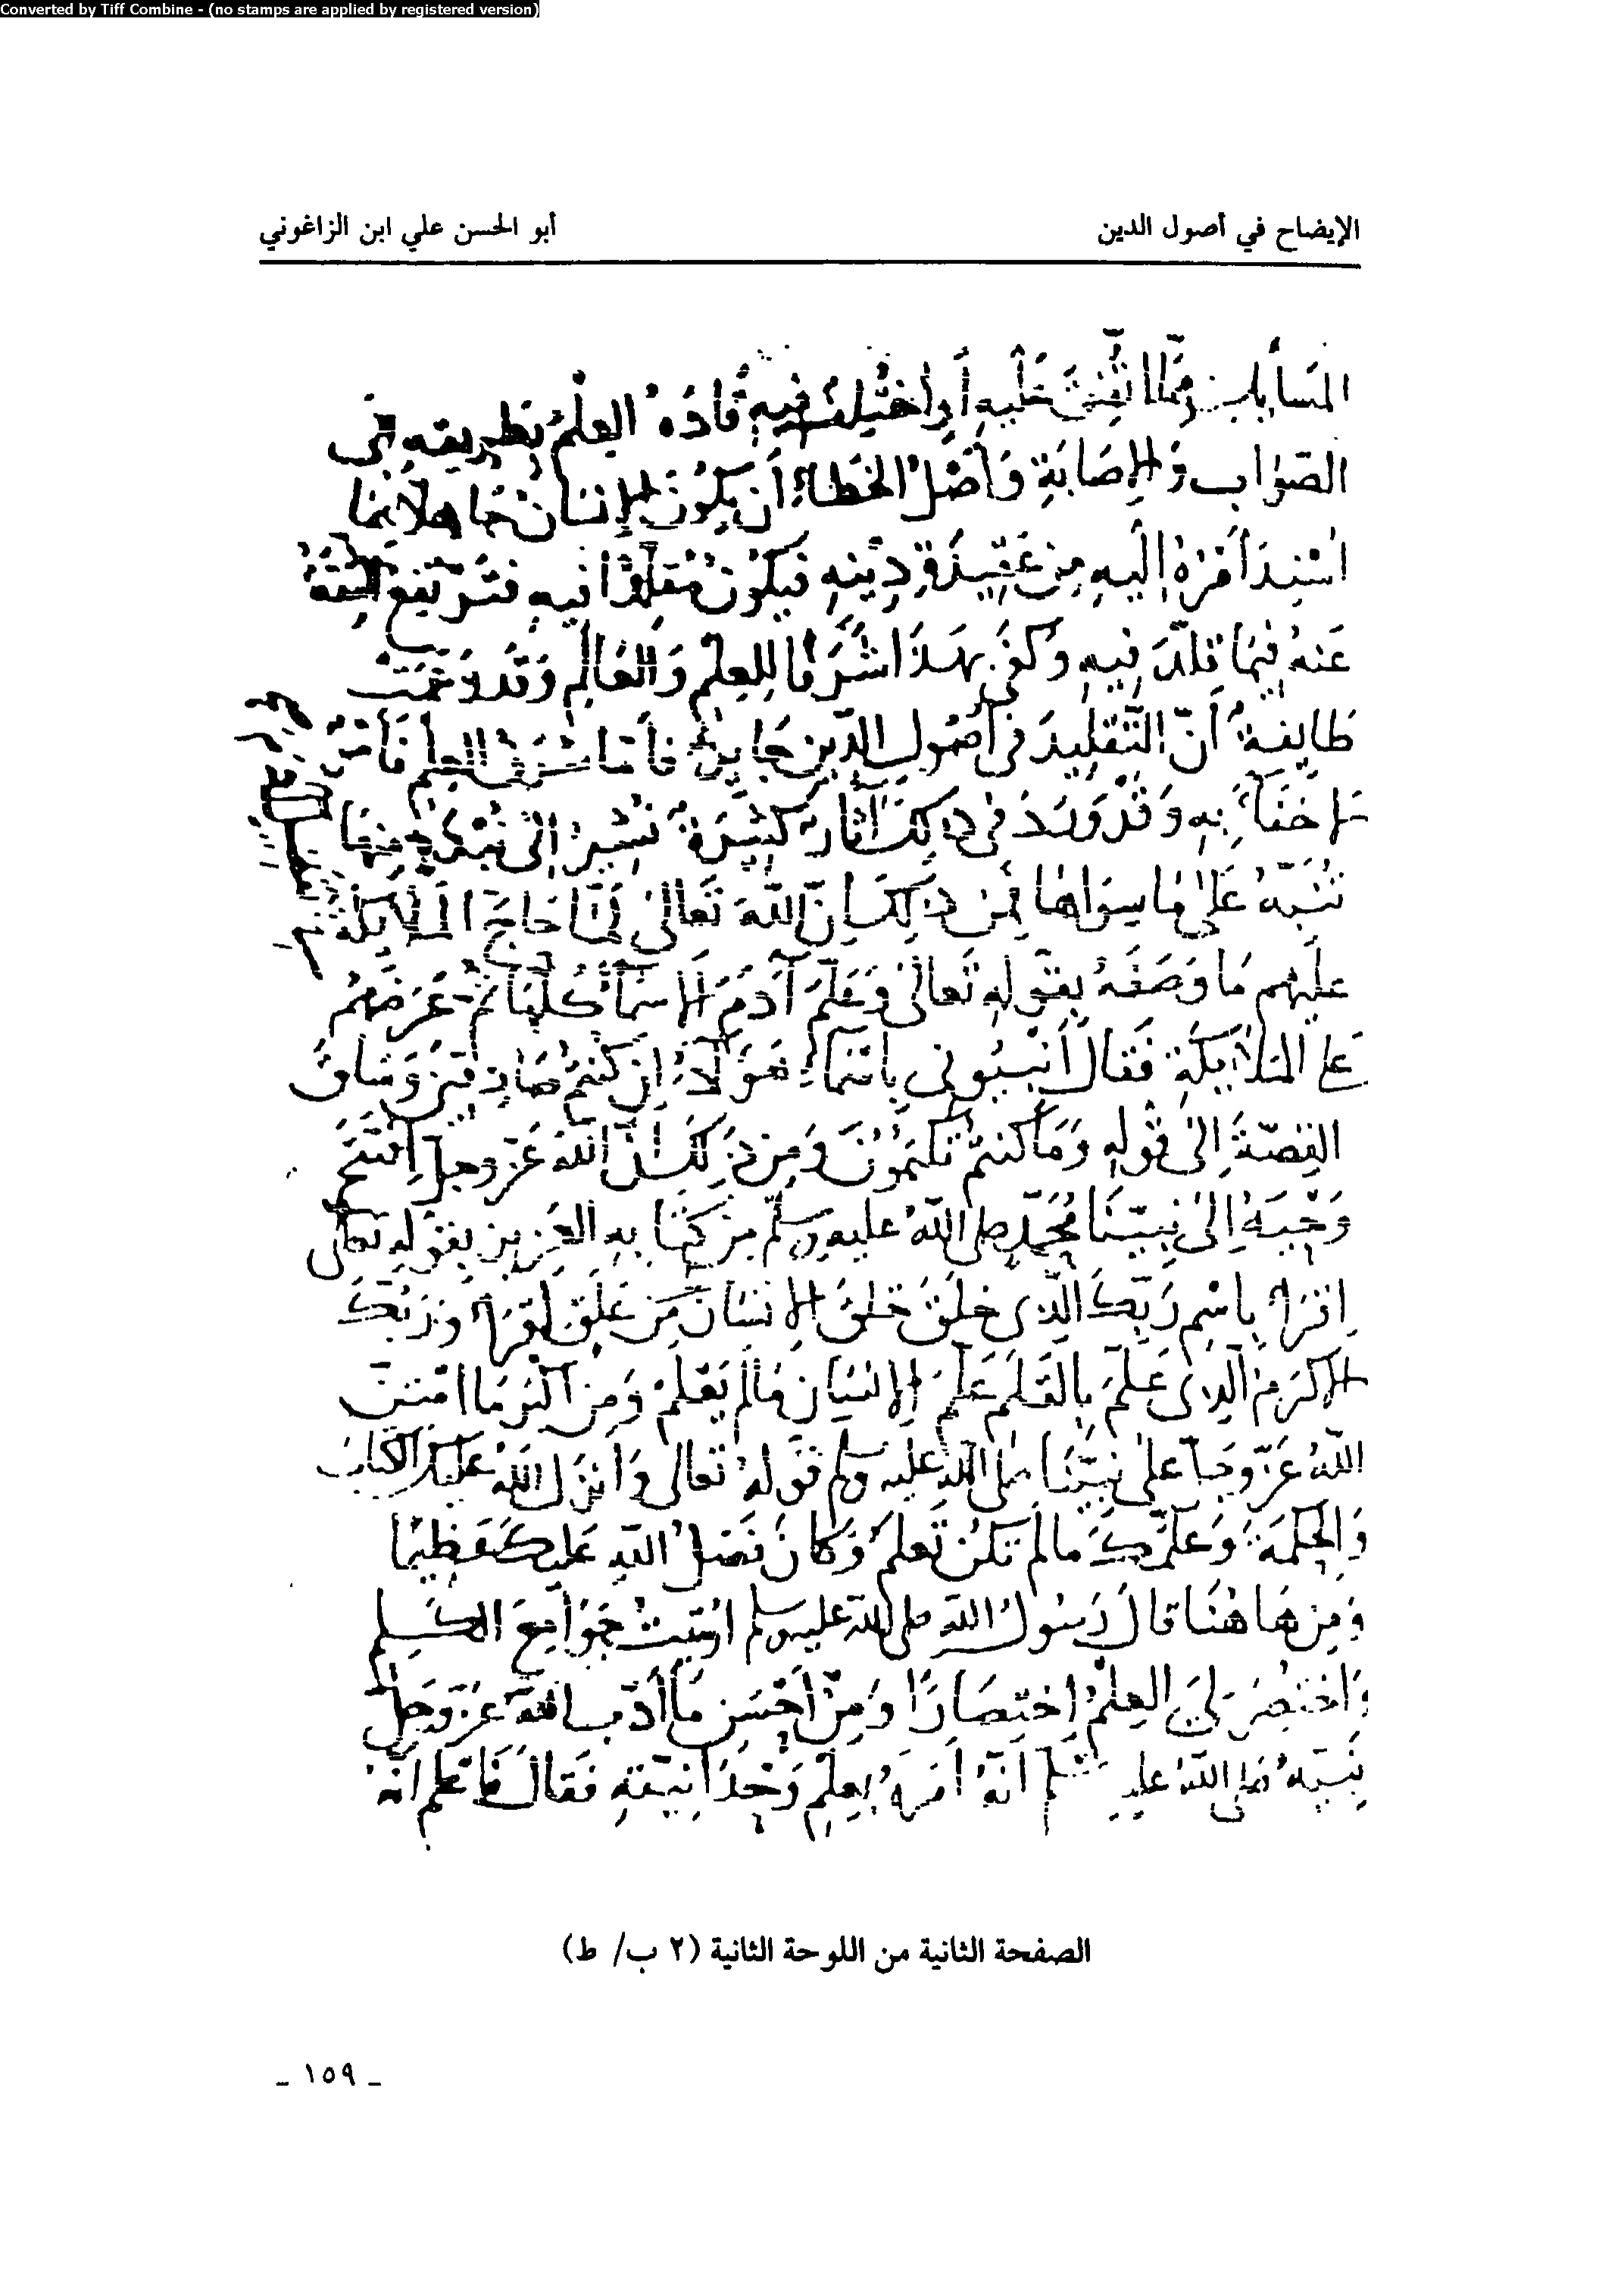 Converted by Tiff Combine - (no stamps are applied by registered version)
الإيضاح في أصول الدين
أبو الحسن علي ابن الزاغوني
المسايل مما اتفق عليه أو اختلف فيه قاده العلم بطريقه إلى
الصواب والإصابة وأصل الخطاء أن يكون الإنسان جاهلا بما
استند أمره إليه من عقيدة دينه فيكون مقلدا فيه فترتفع الثقة
عنه فيما قلد فيه وكفى بهذا شرفا للعلم والعالم وقد زعمت
طايفة أن التقليد في أصول الدين جايز فأما شرف العلم فأمر
لا خفاء به وقد ورد في ذلك آثار كثيرة نشير إلى نبذة منها
تنبه على ما سواها فمن ذلك إن الله تعالى لما حاج الملايكة
عليهم ما وصفه بقوله تعالى وعلم آدم الاسماء كلها ثم عرضهم
على الملايكة فقال أنبيوني باسماء هؤلاء إن كنتم صادقين وساق
القصة إلى قوله وما كنتم تكتمون ومن ذلك أن الله عز وجل افتتح
وحيه إلى نبينا محمد صلى الله عليه وسلم من كتابه العزيز بقوله تعالى
اقرا باسم ربك الذي خلق خلق الإنسان من علق اقرا وربك
الاكرم الذي علم بالقلم علم الإنسان ما لم يعلم ومن أكثر ما امتن
الله عز وجل على نبينا صلى الله عليه وسلم قوله تعالى وانزل الله عليك الكتاب
والحكمة وعلمك ما لم تكن تعلم وكان فضل الله عليك عظيما
ومن هاهنا قال رسول الله صلى الله عليه وسلم اوتيت جوامع الكلم
واختصر لي العلم اختصارا ومن أحسن ما أدب الله عز وجل
نبيه صلى الله عليه وسلم انه امره بعلم وحدانيته فقال فاعلم انه
الصفحة الثانية من اللوحة الثانية (٢ ب/ ط)
- ١٥٩ -